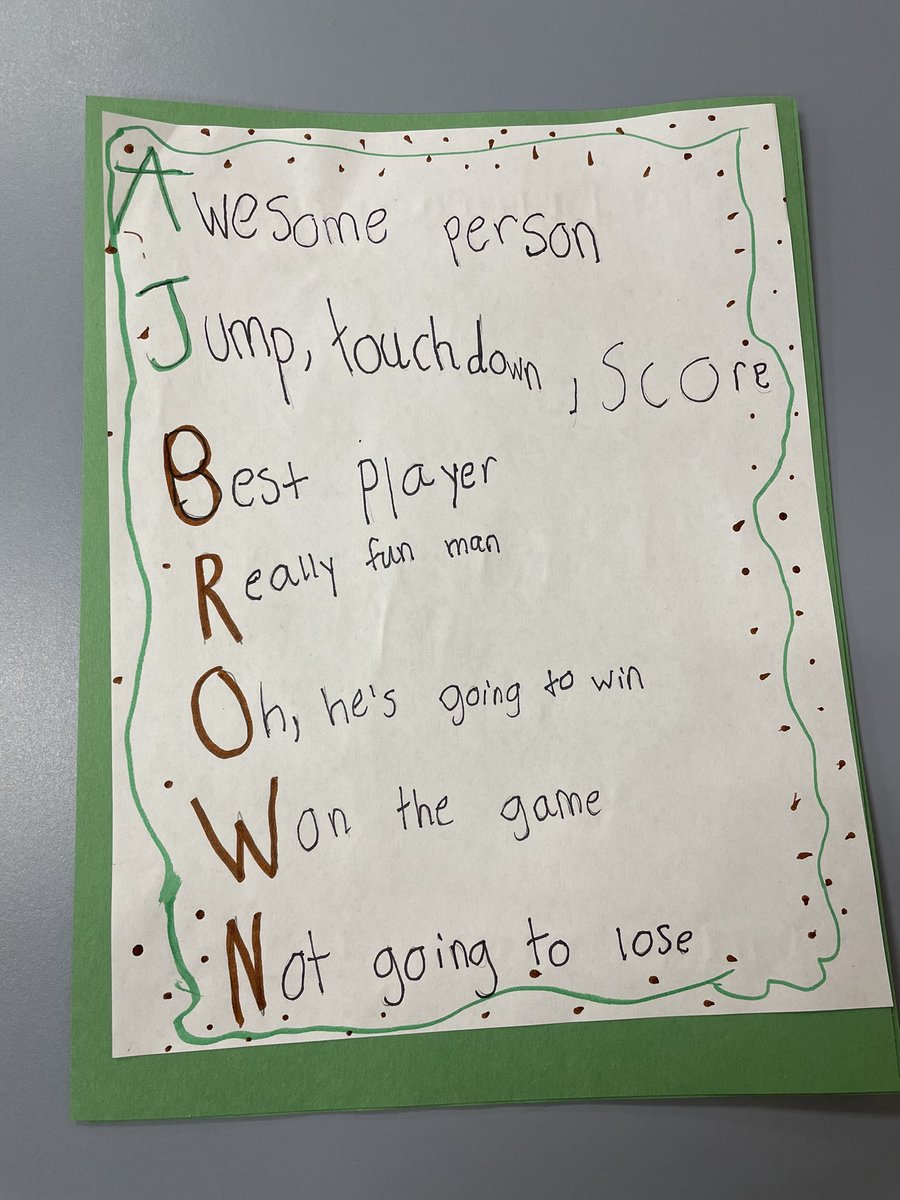 Awesome person
Jump, touchdown, Score
Best player
Really fun man
Oh, he's going to win
Won the game
Not going to lose